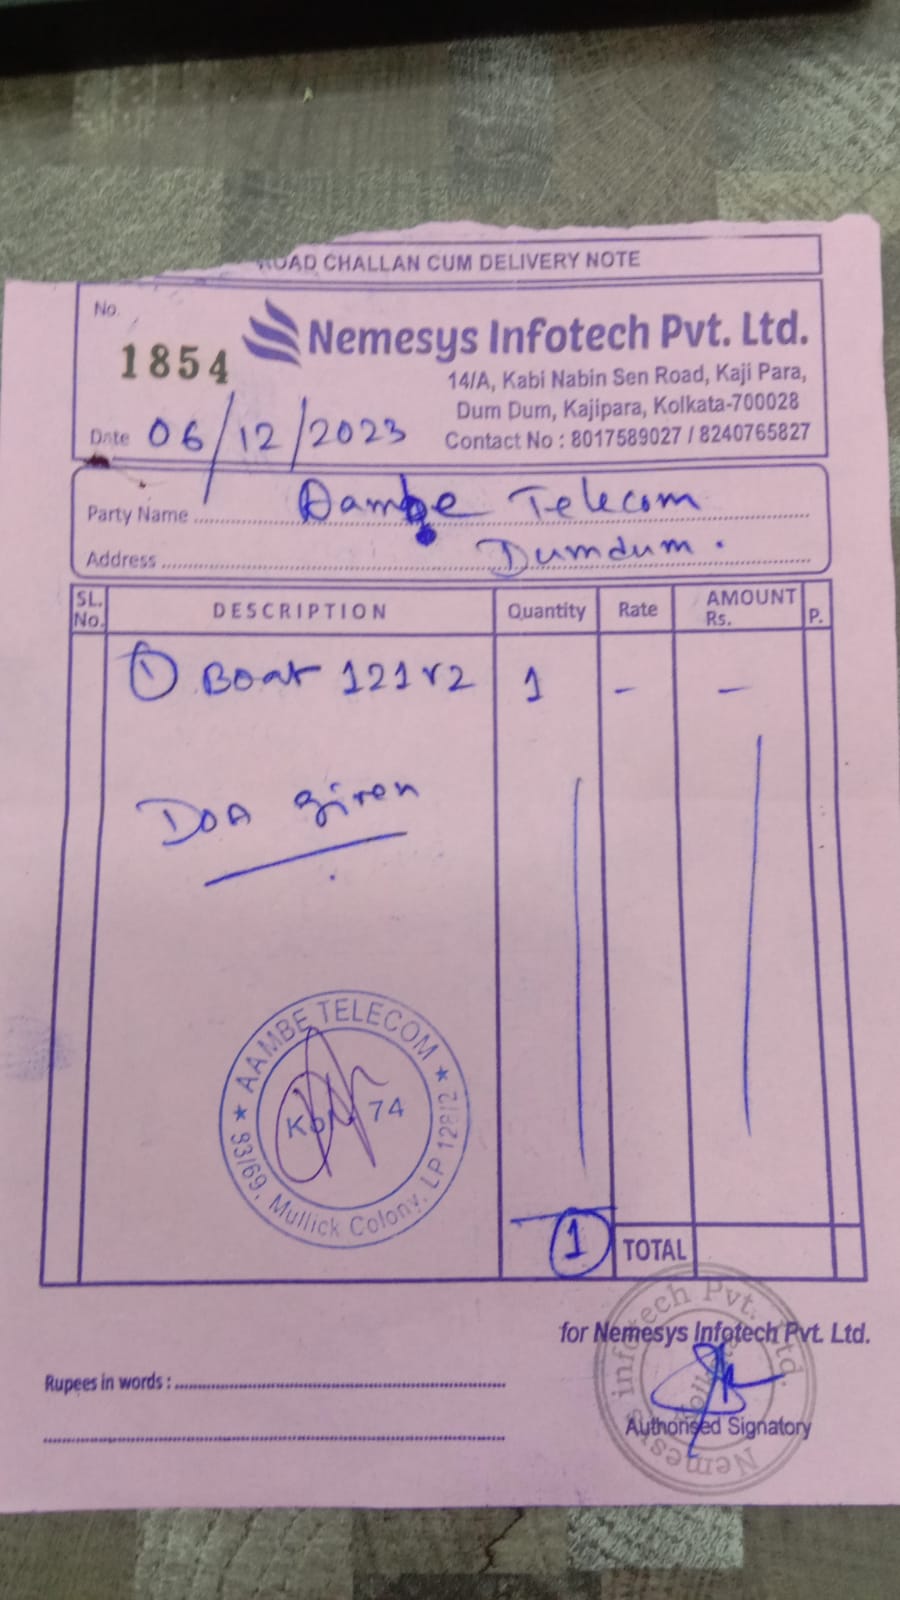 ROAD CHALLAN CUM DELIVERY NOTE
No.
1854
Nemesys Infotech Pvt. Ltd.
14/A, Kabi Nabin Sen Road, Kaji Para,
Dum Dum, Kajipara, Kolkata-700028
Contact No : 8017589027 / 8240765827
Date 06/12/2023
Party Name Aambe Telecom
Address Dumdum.
SL. No. DESCRIPTION Quantity Rate AMOUNT Rs. P.
① Boat 121v2 1 - -
DOA given
★ AAMBE TELECOM ★
74
93/69, Mullick Colony, LP 128/2
1 TOTAL
for Nemesys Infotech Pvt. Ltd.
Rupees in words :
Authorised Signatory
Nemesys Infotech Pvt. Ltd.